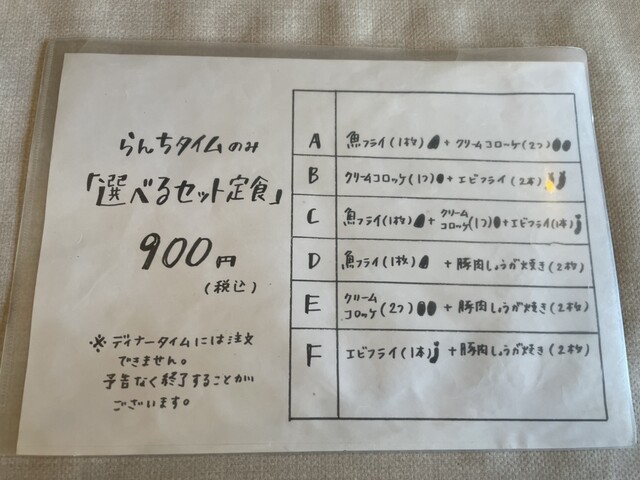 らんちタイムのみ
「選べるセット定食」
900円
(税込)
※ディナータイムには注文
できません。
予告なく終了することが
ございます。
A 魚フライ(1枚) + クリームコロッケ(2つ)
B クリームコロッケ(1つ) + エビフライ(2本)
C 魚フライ(1枚) + クリームコロッケ(1つ) + エビフライ(1本)
D 魚フライ(1枚) + 豚肉しょうが焼き(2枚)
E クリームコロッケ(2つ) + 豚肉しょうが焼き(2枚)
F エビフライ(1本) + 豚肉しょうが焼き(2枚)